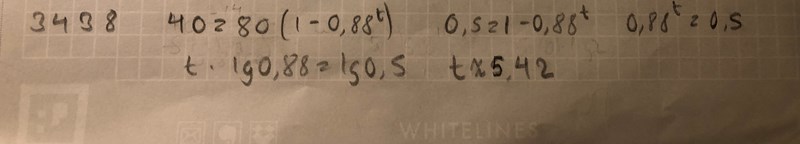 3438 40=80(1-0,88^t) 0,5=1-0,88^t 0,88^t=0,5
t · lg0,88=lg0,5 t≈5,42
WHITELINES